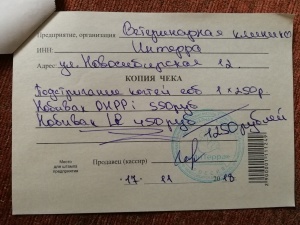 Предприятие, организация Ветеринарная клиника
ИНН Интерра
Адрес ул. Новосибирская 12.
КОПИЯ ЧЕКА
Подстригание когтей соб 1 х 250р
Нобивак DHPPi 550руб
Нобивак LR 450руб
1250рублей
Место для штампа предприятия
Продавец (кассир)
"17" 11 2018